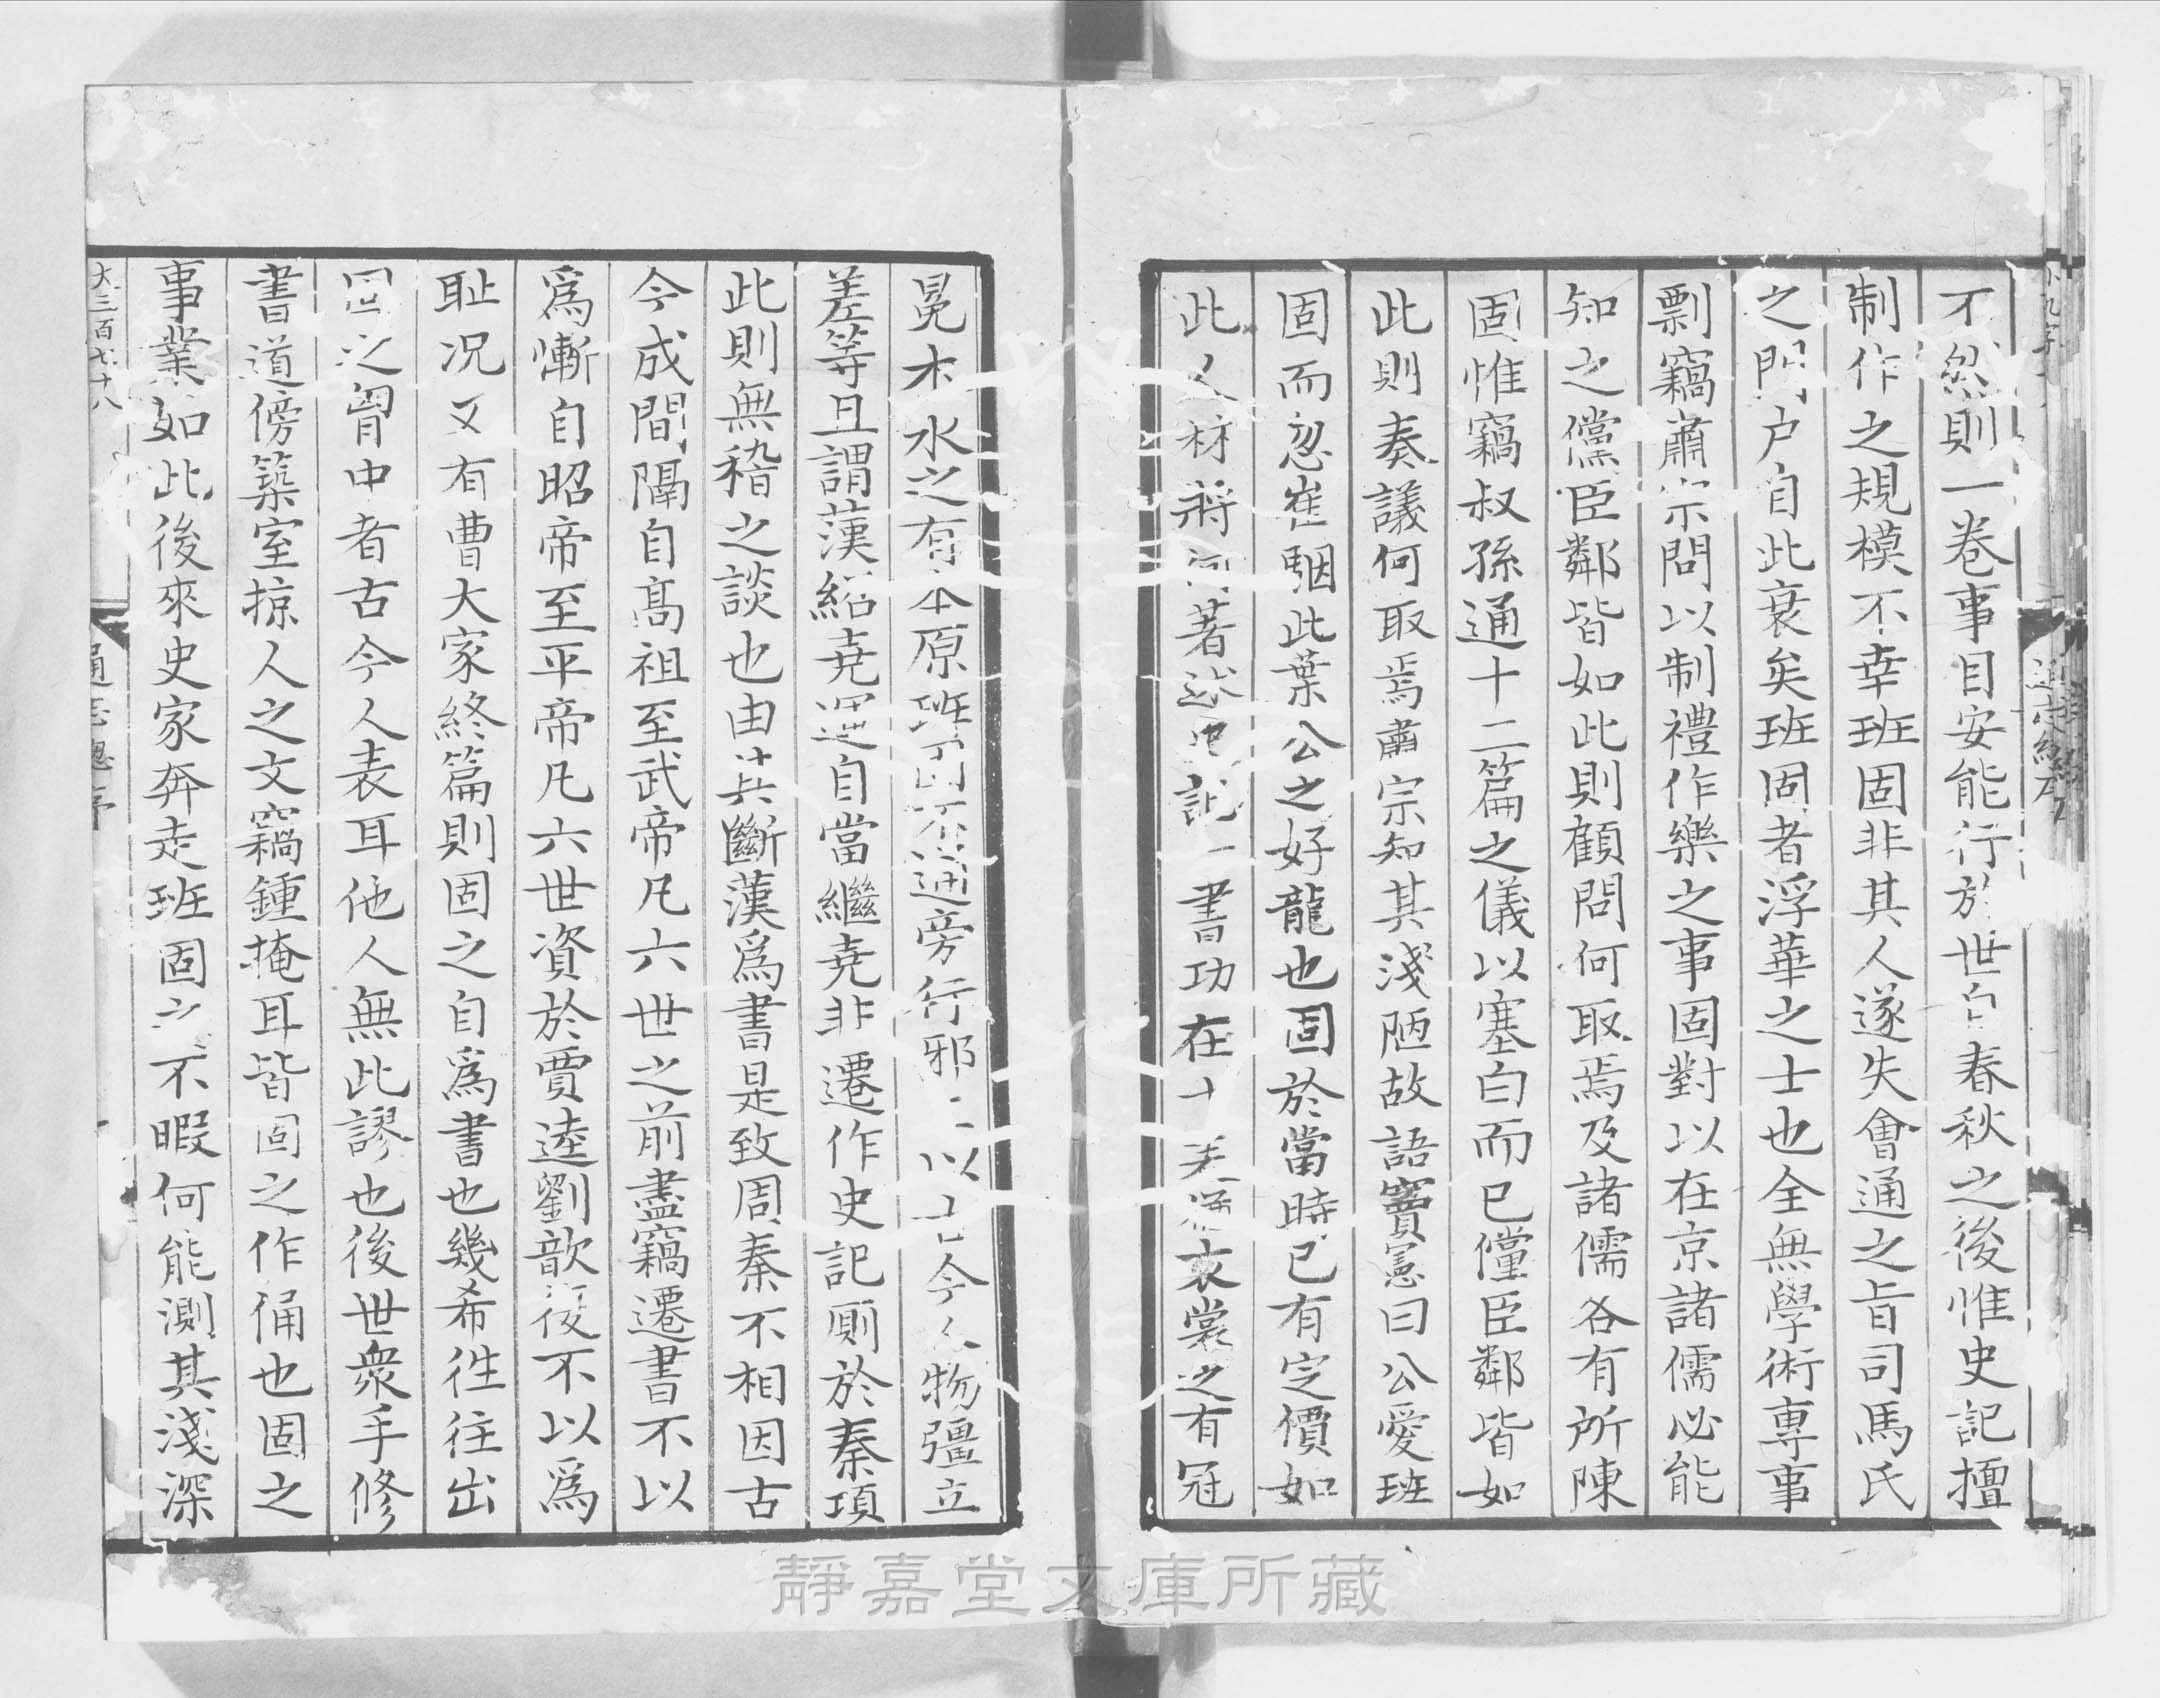 不然則一卷事目安能行於世自春秋之後惟史記擅
制作之規模不幸班固非其人遂失會通之旨司馬氏
之門户自此衰矣班固者浮華之士也全無學術專事
剽竊肅宗問以制禮作樂之事固對以在京諸儒必能
知之儻臣鄰皆如此則顧問何取焉及諸儒各有所陳
固惟竊叔孫通十二篇之儀以塞白而已儻臣鄰皆如
此則奏議何取焉肅宗知其淺陋故語竇憲曰公愛班
固而忽崔駰此葉公之好龍也固於當時已有定價如
此人材將何著述史記一書功在十表猶衣裳之有冠
冕木水之有本原班固不通旁行邪上以古今人物彊立
差等且謂漢紹堯運自當繼堯非遷作史記厠於秦項
此則無稽之談也由其斷漢爲書是致周秦不相因古
今成間隔自髙祖至武帝凡六世之前盡竊遷書不以
爲慚自昭帝至平帝凡六世資於賈逵劉歆復不以爲
耻况又有曹大家終篇則固之自爲書也幾希徃往出
固之胷中者古今人表耳他人無此謬也後世衆手修
書道傍築室掠人之文竊鍾掩耳皆固之作俑也固之
事業如此後來史家奔走班固之不暇何能測其淺深
大三百七十八
通志總序
靜嘉堂文庫所藏